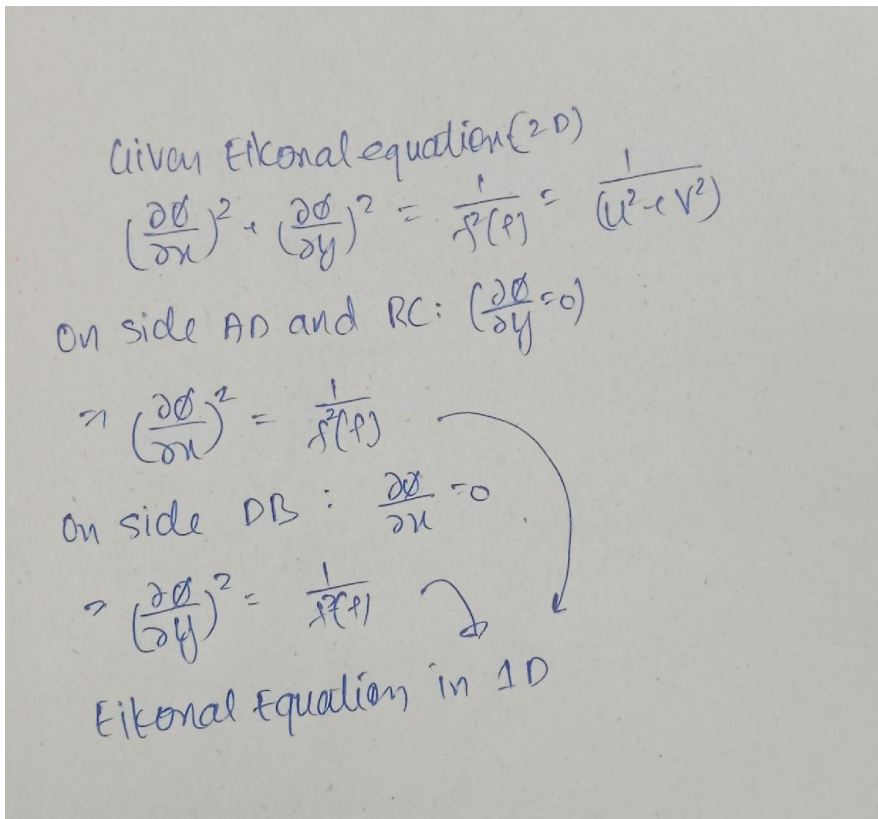 Given Eikonal equation (2D)
(∂ø/∂x)² + (∂ø/∂y)² = 1/f²(ρ) = 1/(u²+v²)
On side AD and BC: (∂ø/∂y = 0)
⇒ (∂ø/∂x)² = 1/f²(ρ)
On side DB : ∂ø/∂x = 0
⇒ (∂ø/∂y)² = 1/f²(ρ)
Eikonal Equation in 1D